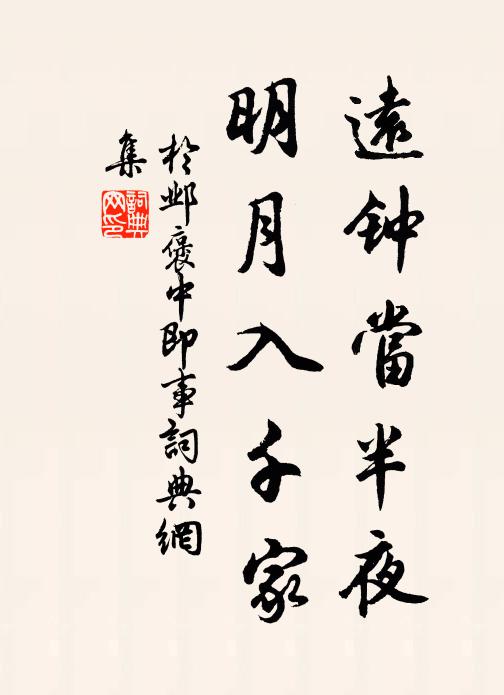 遠钟當半夜
明月入千家
於邺褒中即事詞典網
集
詞典网印